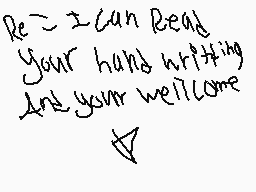 Re = I Can Read
your hand writting
And your wellcome